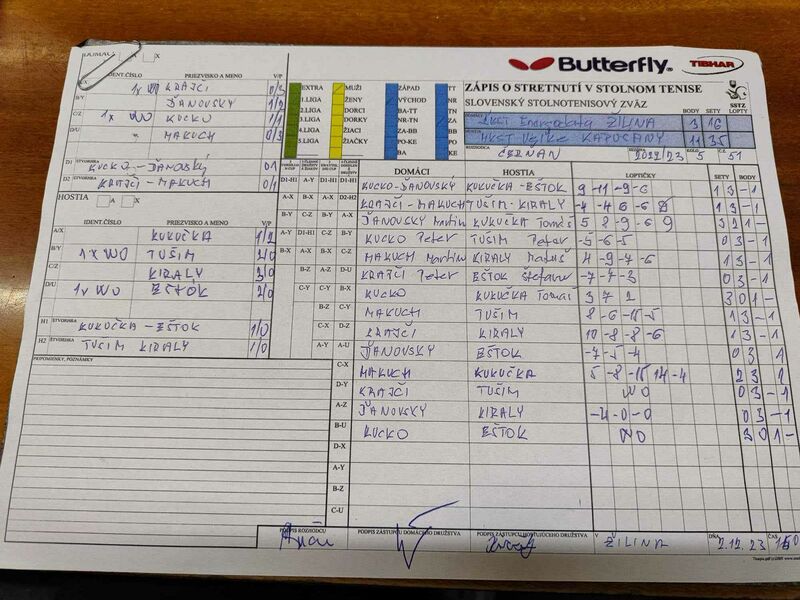 DOMÁCI A X
IDENT.ČÍSLO PRIEZVISKO A MENO V/P
1x WO KRAJČÍ 0/3
B/Y ĎANOVSKÝ 1/2
C/Z 1x WO KUCKO 1/1
D/U MAKUCH 0/3
D1 ŠTVORHRA KUCKO-ĎANOVSKÝ 0/1
D2 ŠTVORHRA KRAJČÍ - MAKUCH 0/1
HOSTIA A X
IDENT.ČÍSLO PRIEZVISKO A MENO V/P
A/X KUKUČKA 1/2
B/Y 1x WO TUŠIM 2/0
C/Z KIRALY 3/0
D/U 1x WO EŠTOK 2/0
H1 ŠTVORHRA KUKUČKA - EŠTOK 1/0
H2 ŠTVORHRA TUŠIM KIRALY 1/0
PRIPOMIENKY, POZNÁMKY
Butterfly TIBHAR
EXTRA MUŽI ZÁPAD TT
1.LIGA ŽENY VÝCHOD NR
2.LIGA DORCI BA-TT TN
3.LIGA DORKY NR-TN ZA
4.LIGA ŽIACI ZA-BB BB
5.LIGA ŽIAČKY PO-KE PO
BA KE
ZÁPIS O STRETNUTÍ V STOLNOM TENISE
SLOVENSKÝ STOLNOTENISOVÝ ZVÄZ
SSTZ
BODY SETY LOPTY
ŽILINA 3 16
MKST Veľké KAPUŠANY 11 35
ROZHODCA ČERNAN SEZÓNA 2022/23 KOLO 5 Č. 51
DOMÁCI HOSTIA LOPTIČKY SETY BODY
D1-H1 KUCKO-ĎANOVSKÝ KUKUČKA-EŠTOK 9 -11 -9 -6 1 3 - 1
D2-H2 KRAJČÍ - MAKUCH TUŠIM - KIRALY 1 3 - 1
A-X ĎANOVSKÝ Martin KUKUČKA Tomáš 5 8 -9 -6 9 3 2 1 -
B-Y KUCKO Peter TUŠIM Peter -5 -6 -5 0 3 - 1
C-Z MAKUCH Martin KIRALY Matúš 4 -9 -7 -6 1 3 - 1
D-U KRAJČÍ Peter EŠTOK Štefan -7 -7 -3 0 3 - 1
B-X KUCKO KUKUČKA Tomáš 3 7 2 3 0 1 -
C-Y MAKUCH TUŠIM 1 3 - 1
D-Z KRAJČÍ KIRALY 10 -8 -8 -6 1 3 - 1
A-U ĎANOVSKÝ EŠTOK -7 -5 -4 0 3 1
C-X MAKUCH KUKUČKA 5 -8 -15 14 -4 2 3 1
D-Y KRAJČÍ TUŠIM WO 0 3 - 1
A-Z ĎANOVSKÝ KIRALY -4 -0 -0 0 3 - 1
B-U KUCKO EŠTOK WO 3 0 1 -
D-X
A-Y
B-Z
C-U
PODPIS ROZHODCU PODPIS ZÁSTUPCU DOMÁCEHO DRUŽSTVA PODPIS ZÁSTUPCU HOSŤUJÚCEHO DRUŽSTVA V ŽILINA DŇA 2.12.23 ČAS